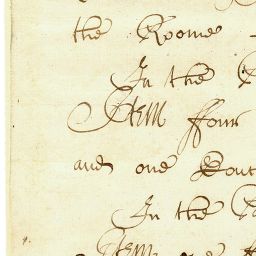 the Roome
In the
Item ffour
and one
In the
Item one